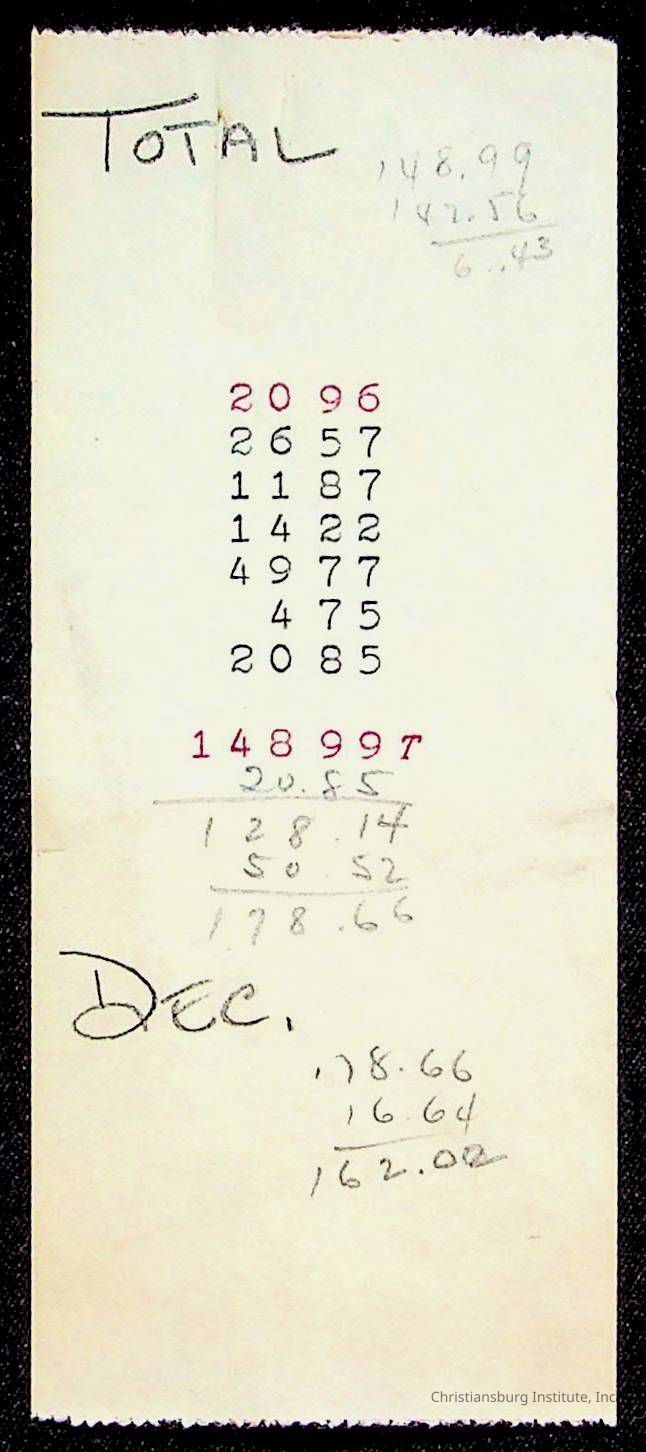 TOTAL
148.99
142.56
6.43
20 96
26 57
11 87
14 22
49 77
4 75
20 85
148 99 T
20.85
128.14
50.52
178.66
DEC.
178.66
16.64
162.02
Christiansburg Institute, Inc